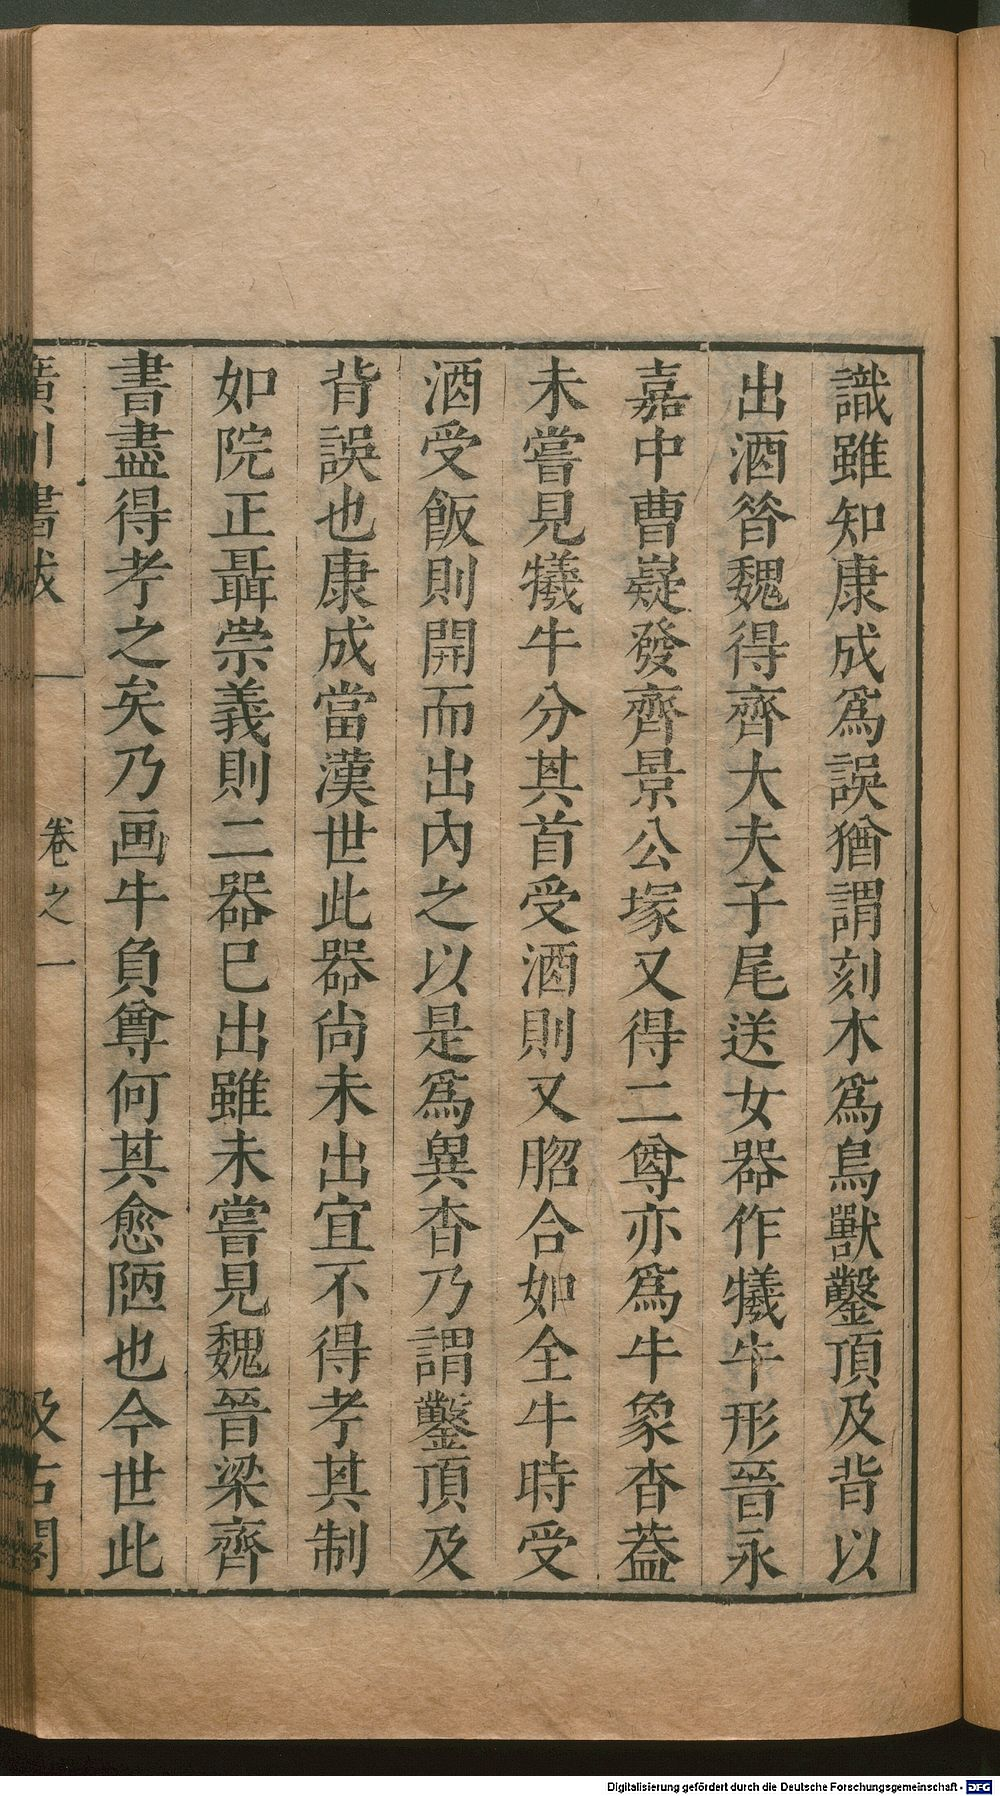 識雖知康成爲誤猶謂刻木爲鳥獸鑿頂及背以
出酒昝魏得齊大夫子尾送女器作犧牛形晉永
嘉中曹嶷發齊景公塚又得二尊亦爲牛象杳葢
未嘗見犧牛分其首受酒則又胳合如全牛時受
酒受飯則開而出內之以是爲異杳乃謂鑿頂及
背誤也康成當漢世此器尚未出宜不得孝其制
如院正聶崇義則二器巳出雖未嘗見魏晉梁齊
書盡得孝之矣乃画牛負尊何其愈陋也今世此
廣川書跋
卷之一
汲古閣
Digitalisierung gefördert durch die Deutsche Forschungsgemeinschaft - DFG